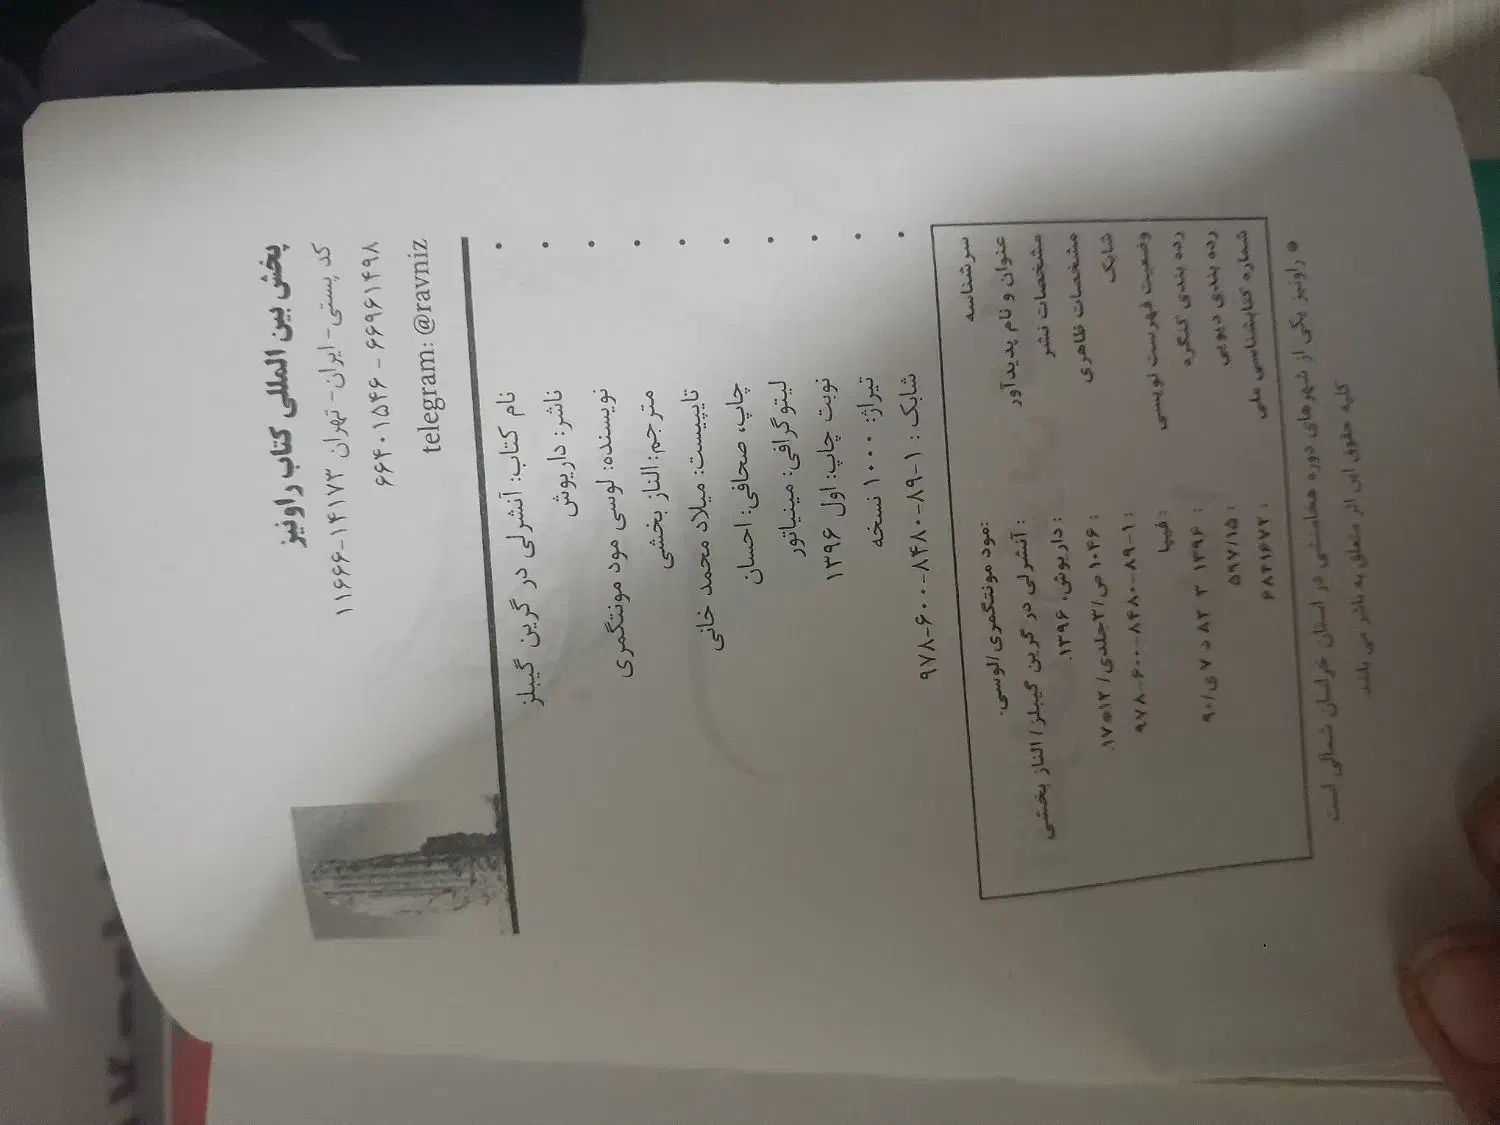 پخش بین المللی کتاب راونیز
کد پستی- ایران- تهران ۱۴۱۷۳-۱۱۶۶۶
۶۶۴۰۱۵۴۶ - ۶۶۹۶۱۴۹۸
telegram: @ravniz
• نام کتاب: آنشرلی در گرین گیبلز
• ناشر: داریوش
• نویسنده: لوسی مود مونتگمری
• مترجم: الناز بخشی
• تایپیست: میلاد محمد خانی
• چاپ، صحافی: احسان
• لیتوگرافی: مینیاتور
• نوبت چاپ: اول ۱۳۹۶
• تیراژ: ۱۰۰۰ نسخه
• شابک : ۱-۸۹-۸۴۸۰-۶۰۰-۹۷۸
سرشناسه :مود مونتگمری/لوسی.
عنوان و نام پدیدآور : آنشرلی در گرین گیبلز/ الناز بخشی
مشخصات نشر : داریوش، ۱۳۹۶.
مشخصات ظاهری : ۱۰۴۶ص/۳جلدی/ ۱۲*۱۷.
شابک : ۱-۸۹-۸۴۸۰-۶۰۰-۹۷۸
وضعیت فهرست نویسی : فیپا
رده بندی کنگره : ۱۳۹۶ ۳ ۸۲ د ۷ ی/۹۰
رده بندی دیویی : ۵۹۷/۱۵
شماره کتابشناسی ملی : ۶۸۲۱۶۷۲
* راونیز یکی از شهرهای دوره هخامنشی در استان خراسان شمالی است
کلیه حقوق این اثر متعلق به ناشر می باشد.